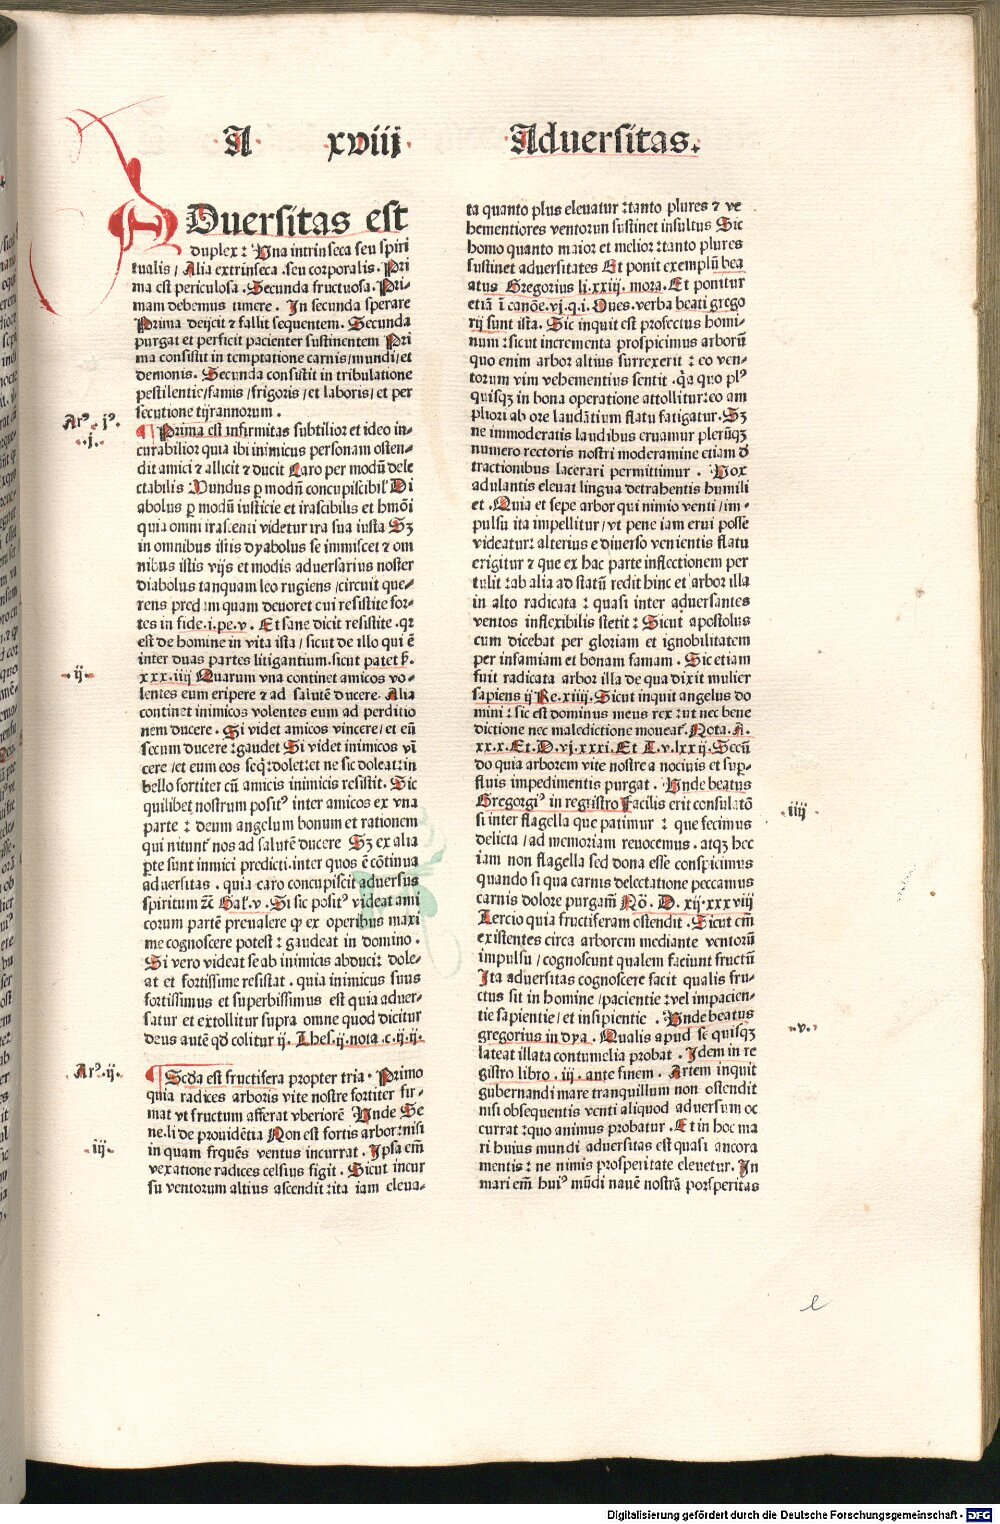 A xviij Aduersitas.
ADuersitas est
duplex: Una intrinseca seu spiri
tualis / Alia extrinseca .seu corporalis. Pri
ma est periculosa. Secunda fructuosa. Pri-
mam debemus timere. In secunda sperare
Prima deijcit ⁊ fallit sequentem. Secunda
purgat et perficit pacienter sustinentem Pri
ma consistit in temptatione carnis/mundi/et
demonis. Secunda consistit in tribulatione
pestilentie/famis/frigoris/et laboris/et per
secutione tyrannorum.
Arꝰ. jꝰ.
.j.
¶ Prima est infirmitas subtilior et ideo in-
curabilior quia ibi inimicus personam osten-
dit amici ⁊ allicit ⁊ ducit Caro per modū dele
ctabilis Mundus p modū concupiscibil' Di
abolus p modū iusticie et irascibilis et hmōi
quia omni irascenti videtur ira sua iusta Sꝫ
in omnibus istis dyabolus se immiscet ⁊ om
nibus istis vijs et modis aduersarius noster
diabolus tanquam leo rugiens /circuit que-
rens predam quam deuoret cui resistite for-
tes in fide.i.pe.v. Et sane dicit resistite .qꝛ
est de homine in vita ista / sicut de illo qui ē
inter duas partes litigantium.sicut patet
.ij.
xxx.iiij Quarum vna continet amicos vo-
lentes eum eripere ⁊ ad salutē ducere. Alia
continet inimicos volentes eum ad perditio
nem ducere. Si videt amicos vincere/et eū
secum ducere :gaudet Si videt inimicos vī
cere /et eum eos seq: dolet: et ne sic doleat: in
bello fortiter cū amicis inimicis resistit. Sic
quilibet nostrum positꝰ inter amicos ex vna
parte : deum angelum bonum et rationem
qui nitunt nos ad salutē ducere Sꝫ ex alia
pte sunt inmici predicti.inter quos ē cōtinua
aduersitas. quia caro concupiscit aduersus
spiritum ⁊c̄ Gal'.v. Si sic positꝰ videat ami
corum partē preualere qꝫ ex operibus maxi
me cognoscere potest: gaudeat in domino.
Si vero videat se ab inimicis abduci: dole-
at et fortissime resistat. quia inimicus suus
fortissimus et superbissimus est quia aduer-
satur et extollitur supra omne quod dicitur
deus autē qd colitur ij. Thes.ij.nota .c.ij.ij.
Arꝰ.ij.
¶ Scda est fructifera propter tria. Primo
quia radices arboris vite nostre fortiter fir-
mat vt fructum afferat vberiorē Unde Se
.iij.
ne.li de prouidētia Non est fortis arbor:nisi
in quam frquēs ventus incurrat. Ipsa em̄
vexatione radices celsius figit. Sicut incur
su ventorum altius ascendit:ita iam eleua-
ta quanto plus eleuatur :tanto plures ⁊ ve
hementiores ventorum sustinet insultus Sic
homo quanto maior et melior :tanto plures
sustinet aduersitates Et ponit exemplū bea
atus Gregorius li.xxiij. mora. Et ponitur
etiā ī canōe.vj.q.i. Oues. verba beati grego
rij sunt ista. Sic inquit est profectus homi-
num :sicut incrementa prospicimus arborū
quo enim arbor altius surrexerit : eo ven-
torum vim vehementius sentit .q̄a quo plꝰ
quisqꝫ in bona operatione attollitur:eo am
pliori ab ore laudātium flatu fatigatur. Sꝫ
ne immoderatis laudibus eruamur plerūqꝫ
numero rectoris nostri moderamine etiam d
tractionibus lacerari permittimur. Uox
adulantis eleuat lingua detrahentis humili
et. Quia et sepe arbor qui nimio venti /im-
pulsu ita impellitur /vt pene iam erui posse
videatur: alterius e diuerso venientis flatu
erigitur ⁊ que ex hac parte inflectionem per
tulit :ab alia ad statū redit hinc et arbor illa
in alto radicata : quasi inter aduersantes
ventos inflexibilis stetit: Sicut apostolus
cum dicebat per gloriam et ignobilitatem
per infamiam et bonam famam. Sic etiam
fuit radicata arbor illa de qua dixit mulier
sapiens ij Re.xiiij. Sicut inquit angelus do
mini: sic est dominus meus rex :vt nec bene
dictione nec maledictione moueat. Nota. A.
xx.x. Et. D.vj.xxxi. Et T.v.lxxij. Secū
do quia arborem vite nostre a nociuis et sup-
fluis impedimentis purgat. Unde beatus
.iiij
Gregorgiꝰ in registro Facilis erit consulatō
si inter flagella que patimur : que fecimus
delicta/ ad memoriam reuocemus. atqꝫ hec
iam non flagella sed dona esse conspicimus
quando si qua carnis delectatione peccamus
carnis dolore purgam̄ Nō. D. xij.xxxviij
Tercio quia fructiferam ostendit. Sicut em̄
existentes circa arborem mediante ventorū
impulsu / cognoscunt qualem faciunt fructū
Ita aduersitas cognoscere facit qualis fru-
ctus sit in homine /pacientie :vel impacien-
tie sapientie/ et insipientie. Unde beatus
.v.
gregorius in dya. Qualis apud se quisqꝫ
lateat illata contumelia probat. Idem in re
gistro libro. iij. ante finem. Artem inquit
gubernandi mare tranquillum non ostendit
nisi obsequentis venti aliquod aduersum oc
currat :quo animus probatur. Et in hoc ma
ri huius mundi aduersitas est quasi ancora
mentis: ne nimis prosperitate eleuetur. In
mari em̄ huiꝰ mūdi nauē nostrā porsperitas
e
Digitalisierung gefördert durch die Deutsche Forschungsgemeinschaft - DFG